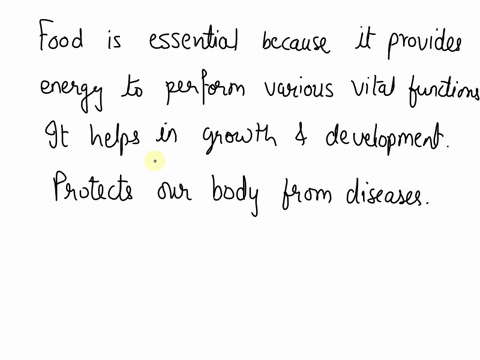 Food is essential because it provides
energy to perform various vital functions
It helps in growth & development.
Protects our body from diseases.